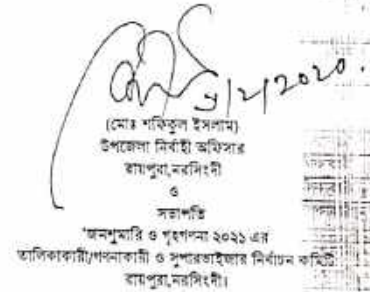 ৯/২/২০২০.
(মোঃ শফিকুল ইসলাম)
উপজেলা নির্বাহী অফিসার
রায়পুরা,নরসিংদী
ও
সভাপতি
'জনশুমারি ও গৃহগণনা ২০২১ এর
তালিকাকারী/গণনাকারী ও সুপারভাইজার নির্বাচন কমিটি
রায়পুরা,নরসিংদী।